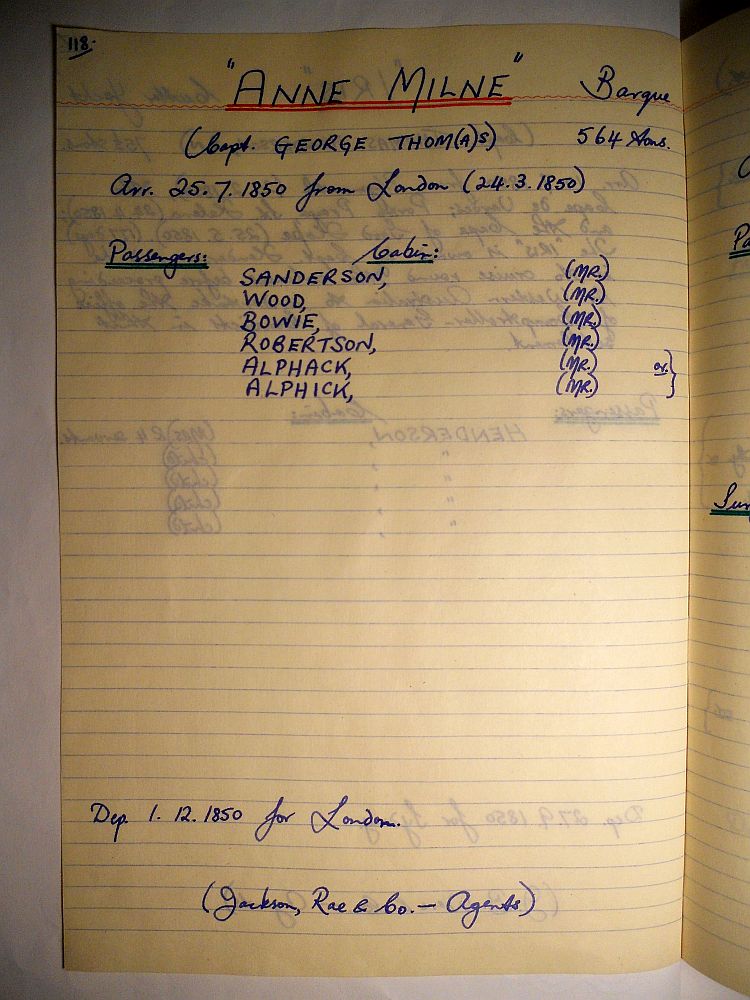 118.
"ANNE MILNE" Barque
(Capt. GEORGE THOM(A)S) 564 tons.
Arr. 25.7.1850 from London (24.3.1850)
Passengers: Cabin:
SANDERSON, (MR.)
WOOD, (MR.)
BOWIE, (MR.)
ROBERTSON, (MR.)
ALPHACK, (MR.) or }
ALPHICK, (MR.)
Dep. 1.12.1850 for London.
(Jackson, Rae & Co. - Agents)